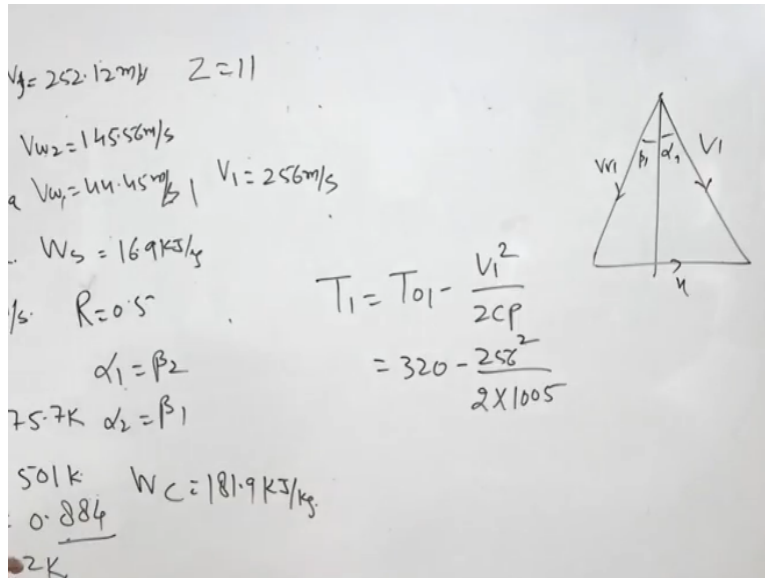 Vf = 252.12 m/s   Z = 11
Vw2 = 145.56 m/s
Vw1 = 44.45 m/s | V1 = 256 m/s
Ws = 16.9 KJ/kg
/s. R = 0.5
α1 = β2
75.7K α2 = β1
501K
0.884
2K
Wc = 181.9 KJ/kg
T1 = T01 - V1²/2CP
= 320 - 256²/2×1005
Vr1 β1 α1 V1
u